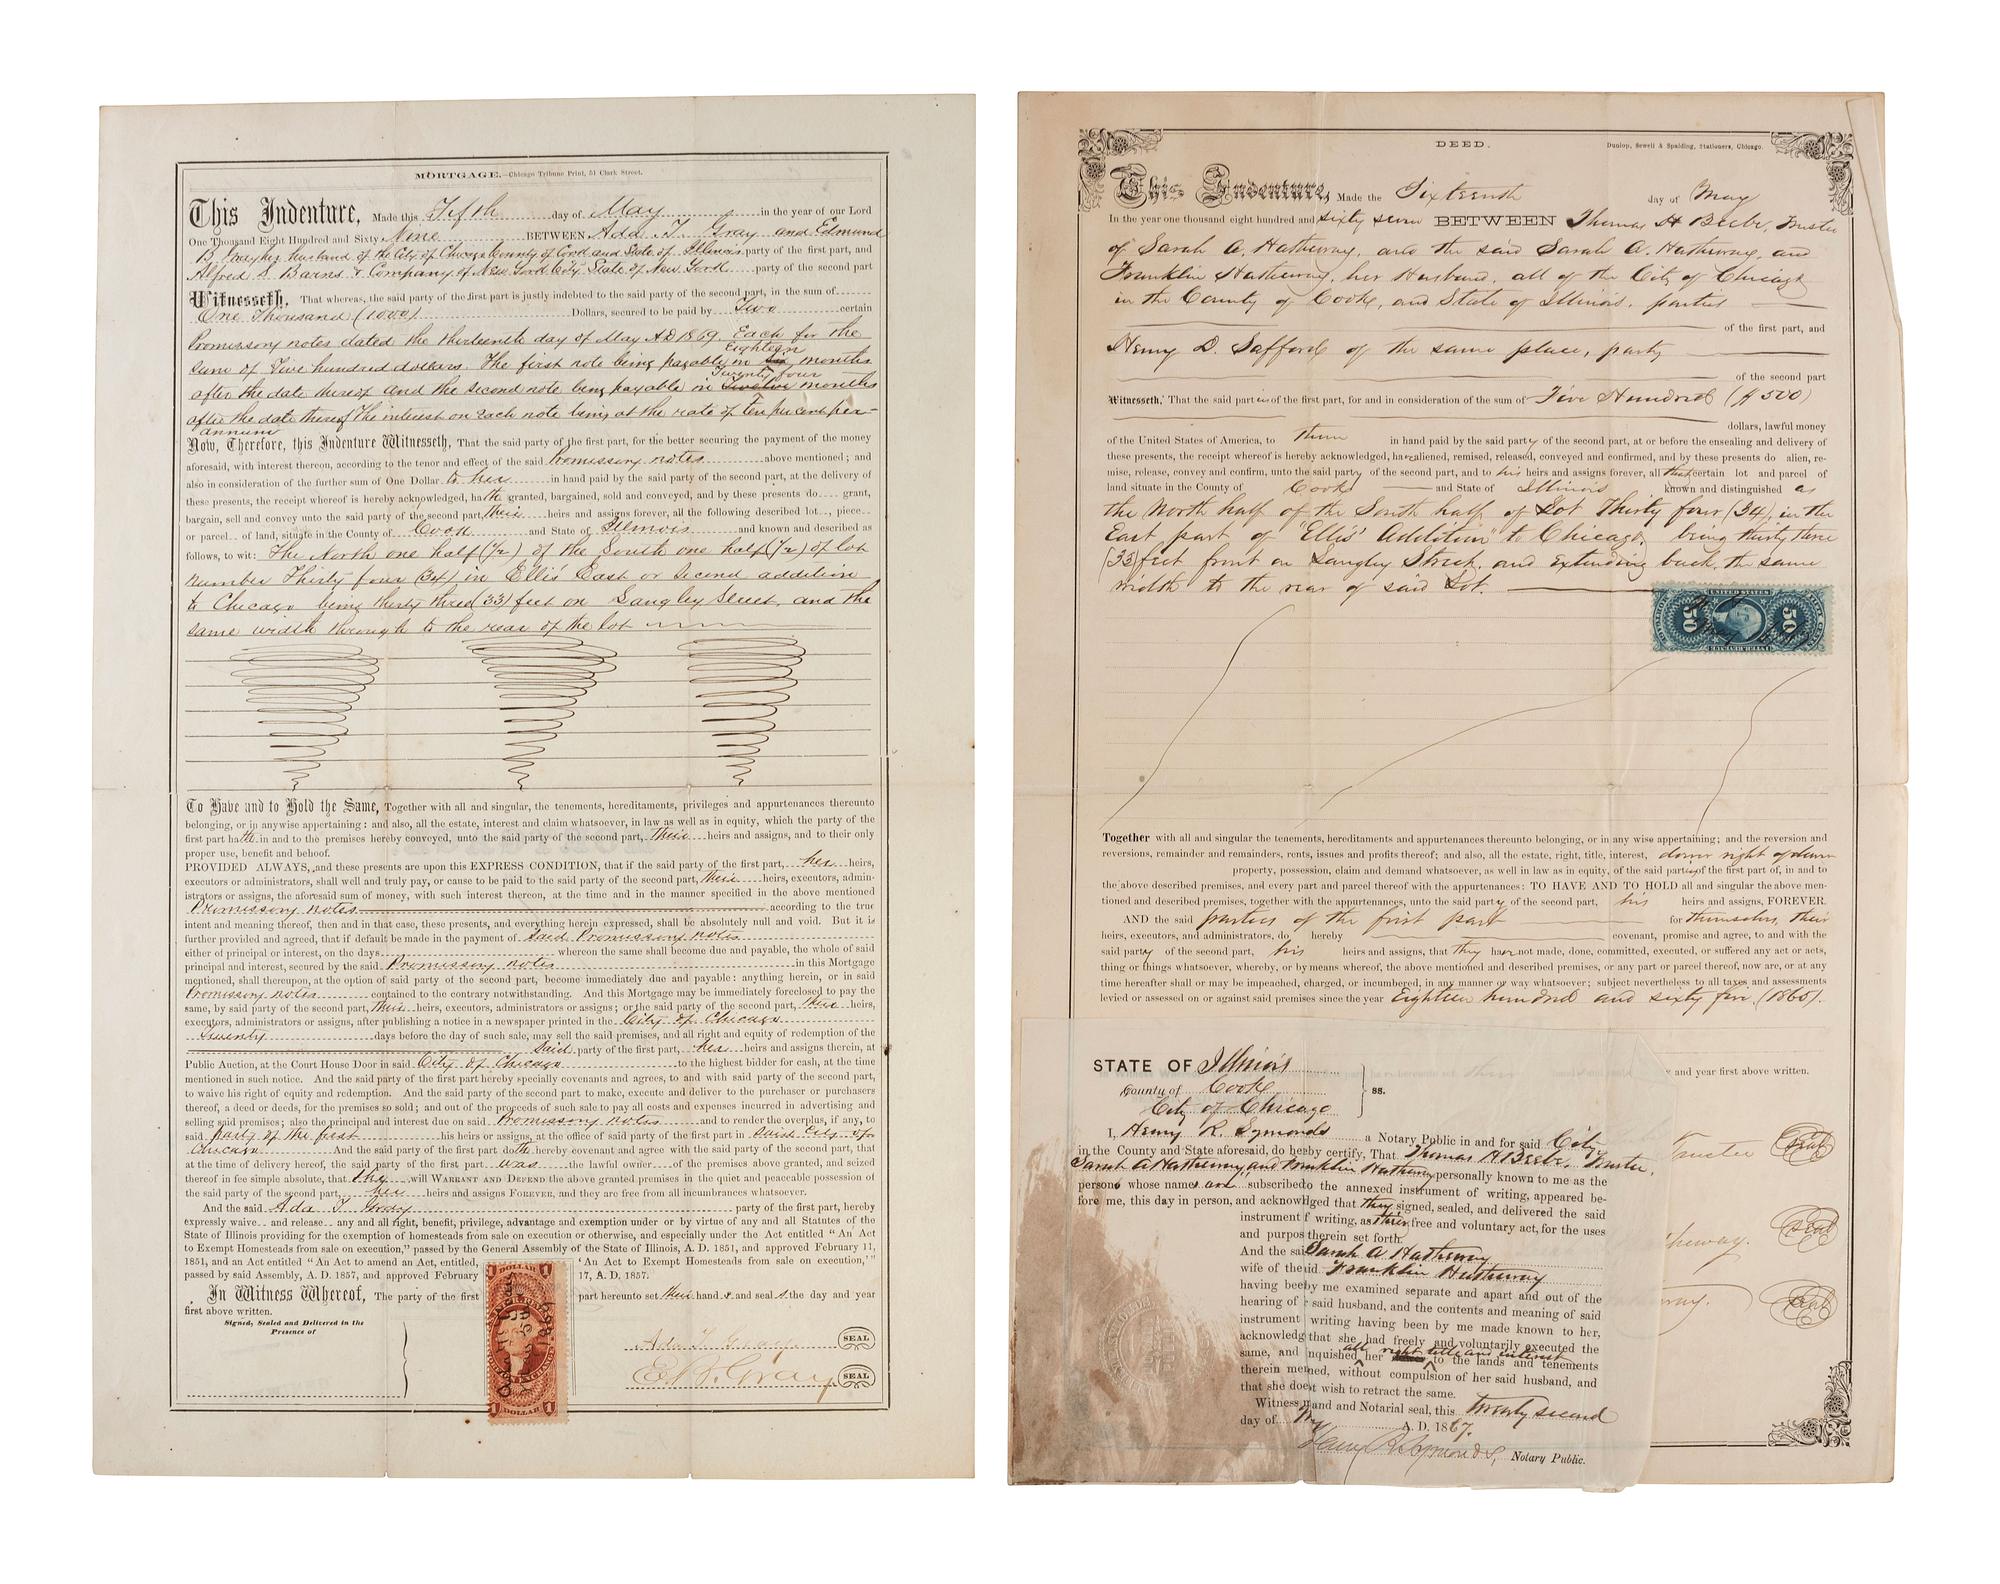 MORTGAGE.—Chicago Tribune Print, 51 Clark Street.
This Indenture, Made this Fifth day of May in the year of our Lord
One Thousand Eight Hundred and Sixty Nine BETWEEN Ada T. Gray and Edmund
B. Gray her husband of the City of Chicago County of Cook and State of Illinois party of the first part, and
Alfred S. Barns & Company of New York City State of New York party of the second part
Witnesseth, That whereas, the said party of the first part is justly indebted to the said party of the second part, in the sum of
One Thousand (1000) Dollars, secured to be paid by Two certain
Promissory notes dated the thirteenth day of May AD 1869. Each for the
Eighteen
sum of Five hundred dollars. The first note being payable in six months
Twenty four
after the date thereof and the second note being payable in Twelve months
after the date thereof The interest on each note being at the rate of Ten per cent per
annum
Now, Therefore, this Indenture Witnesseth, That the said party of the first part, for the better securing the payment of the money
aforesaid, with interest thereon, according to the tenor and effect of the said Promissory notes above mentioned; and
also in consideration of the further sum of One Dollar to her in hand paid by the said party of the second part, at the delivery of
these presents, the receipt whereof is hereby acknowledged, hath granted, bargained, sold and conveyed, and by these presents do grant,
bargain, sell and convey unto the said party of the second part, their heirs and assigns forever, all the following described lot, piece
or parcel of land, situate in the County of Cook and State of Illinois and known and described as
follows, to wit: The North one half (1/2) of the South one half (1/2) of lot
number Thirty four (34) in Ellis East or Second addition
to Chicago being thirty three (33) feet on Langley Street, and the
same width through to the rear of the lot
To Have and to Hold the Same, Together with all and singular, the tenements, hereditaments, privileges and appurtenances thereunto
belonging, or in anywise appertaining: and also, all the estate, interest and claim whatsoever, in law as well as in equity, which the party of the
first part hath in and to the premises hereby conveyed, unto the said party of the second part, their heirs and assigns, and to their only
proper use, benefit and behoof.
PROVIDED ALWAYS, and these presents are upon this EXPRESS CONDITION, that if the said party of the first part, her heirs,
executors or administrators, shall well and truly pay, or cause to be paid to the said party of the second part, their heirs, executors, admin-
istrators or assigns, the aforesaid sum of money, with such interest thereon, at the time and in the manner specified in the above mentioned
Promissory notes according to the true
intent and meaning thereof, then and in that case, these presents, and everything herein expressed, shall be absolutely null and void. But it is
further provided and agreed, that if default be made in the payment of Said Promissory notes
either of principal or interest, on the days whereon the same shall become due and payable, the whole of said
principal and interest, secured by the said Promissory notes in this Mortgage
mentioned, shall thereupon, at the option of said party of the second part, become immediately due and payable: anything herein, or in said
Promissory notes contained to the contrary notwithstanding. And this Mortgage may be immediately foreclosed to pay the
same, by said party of the second part, their heirs, executors, administrators or assigns; or the said party of the second part, their heirs,
executors, administrators or assigns, after publishing a notice in a newspaper printed in the City of Chicago
Twenty days before the day of such sale, may sell the said premises, and all right and equity of redemption of the
Said party of the first part, her heirs and assigns therein, at
Public Auction, at the Court House Door in said City of Chicago to the highest bidder for cash, at the time
mentioned in such notice. And the said party of the first part hereby specially covenants and agrees, to and with said party of the second part,
to waive his right of equity and redemption. And the said party of the second part to make, execute and deliver to the purchaser or purchasers
thereof, a deed or deeds, for the premises so sold; and out of the proceeds of such sale to pay all costs and expenses incurred in advertising and
selling said premises; also the principal and interest due on said Promissory notes and to render the overplus, if any, to
said party of the first his heirs or assigns, at the office of said party of the first part in said City of
Chicago And the said party of the first part doth hereby covenant and agree with the said party of the second part, that
at the time of delivery hereof, the said party of the first part was the lawful owner of the premises above granted, and seized
thereof in fee simple absolute, that she will WARRANT AND DEFEND the above granted premises in the quiet and peaceable possession of
the said party of the second part, her heirs and assigns FOREVER, and they are free from all incumbrances whatsoever.
And the said Ada T Gray party of the first part, hereby
expressly waive and release any and all right, benefit, privilege, advantage and exemption under or by virtue of any and all Statutes of the
State of Illinois providing for the exemption of homesteads from sale on execution or otherwise, and especially under the Act entitled "An Act
to Exempt Homesteads from sale on execution," passed by the General Assembly of the State of Illinois, A. D. 1851, and approved February 11,
1851, and an Act entitled "An Act to amend an Act, entitled, 'An Act to Exempt Homesteads from sale on execution,'"
passed by said Assembly, A. D. 1857, and approved February 17, A. D. 1857.
In Witness Whereof, The party of the first part hereunto set their hands and seals the day and year
first above written.
Signed, Sealed and Delivered in the
Presence of
Ada T Gray SEAL
E. B. Gray SEAL
1 DOLLAR 1
1 DOLLAR 1
DEED.
Dunlop, Sewell & Spalding, Stationers, Chicago.
This Indenture, Made the Sixteenth day of May
In the year one thousand eight hundred and sixty seven BETWEEN Thomas H Beebe, Trustee
of Sarah A. Hatheway, and the said Sarah A. Hatheway, and
Franklin Hatheway, her Husband, all of the City of Chicago
in the County of Cook, and State of Illinois, parties
of the first part, and
Henry D. Safford of the same place, party
of the second part
Witnesseth, That the said parties of the first part, for and in consideration of the sum of Five Hundred ($500)
dollars, lawful money
of the United States of America, to them in hand paid by the said party of the second part, at or before the ensealing and delivery of
these presents, the receipt whereof is hereby acknowledged, have aliened, remised, released, conveyed and confirmed, and by these presents do alien, re-
mise, release, convey and confirm, unto the said party of the second part, and to his heirs and assigns forever, all that certain lot and parcel of
land situate in the County of Cook and State of Illinois known and distinguished as
the North half of the South half of Lot Thirty four (34) in the
East part of "Ellis' Addition" to Chicago, being thirty three
(33) feet front on Langley Street, and extending back, the same
width to the rear of said Lot.
UNITED STATES
50 50
INTER. REVENUE
Together with all and singular the tenements, hereditaments and appurtenances thereunto belonging, or in any wise appertaining; and the reversion and
reversions, remainder and remainders, rents, issues and profits thereof; and also, all the estate, right, title, interest, dower right of dower
property, possession, claim and demand whatsoever, as well in law as in equity, of the said parties of the first part, of, in and to
the above described premises, and every part and parcel thereof with the appurtenances: TO HAVE AND TO HOLD all and singular the above men-
tioned and described premises, together with the appurtenances, unto the said party of the second part, his heirs and assigns, FOREVER.
AND the said parties of the first part for themselves, their
heirs, executors, and administrators, do hereby covenant, promise and agree, to and with the
said party of the second part, his heirs and assigns, that they have not made, done, committed, executed, or suffered any act or acts,
thing or things whatsoever, whereby, or by means whereof, the above mentioned and described premises, or any part or parcel thereof, now are, or at any
time hereafter shall or may be impeached, charged, or incumbered, in any manner or way whatsoever; subject nevertheless to all taxes and assessments
levied or assessed on or against said premises since the year Eighteen hundred and sixty five (1865).
and year first above written.
STATE OF Illinois
County of Cook ss.
City of Chicago
I, Henry R. Symonds a Notary Public in and for said City
in the County and State aforesaid, do hereby certify, That Thomas H Beebe, Trustee,
Sarah A Hatheway, and Franklin Hatheway personally known to me as the
persons whose names are subscribed to the annexed instrument of writing, appeared be-
fore me, this day in person, and acknowledged that they signed, sealed, and delivered the said
instrument f writing, as their free and voluntary act, for the uses
and purpos therein set forth.
And the said Sarah A Hatheway
wife of the id Franklin Hatheway
having bee by me examined separate and apart and out of the
hearing of said husband, and the contents and meaning of said
instrument writing having been by me made known to her,
acknowledg that she had freely and voluntarily executed the
all right title and interest
same, and nquished her to the lands and tenements
therein me ned, without compulsion of her said husband, and
that she does t wish to retract the same.
Witness and and Notarial seal, this Twenty second
day of May A. D. 1867.
Henry R. Symonds, Notary Public.
Trustee Seal
heway. Seal
way. Seal